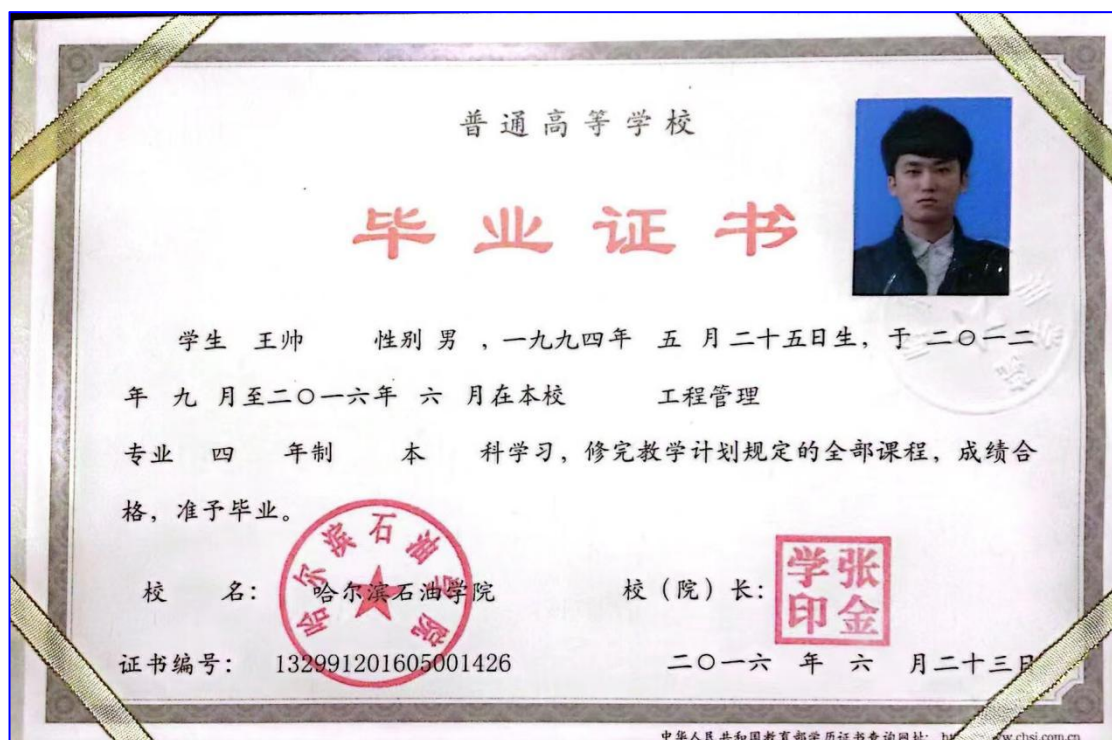 普通高等学校
毕业证书
学生 王帅 性别 男 ，一九九四年 五 月二十五日生，于 二〇一二
年 九 月至二〇一六年 六 月在本校 工程管理
专业 四 年制 本 科学习，修完教学计划规定的全部课程，成绩合
格，准予毕业。
哈尔滨石油学院
校 名： 哈尔滨石油学院 校（院）长： 张金学印
证书编号： 132991201605001426 二〇一六 年 六 月二十三日
中华人民共和国教育部学历证书查询网址： www.chsi.com.cn